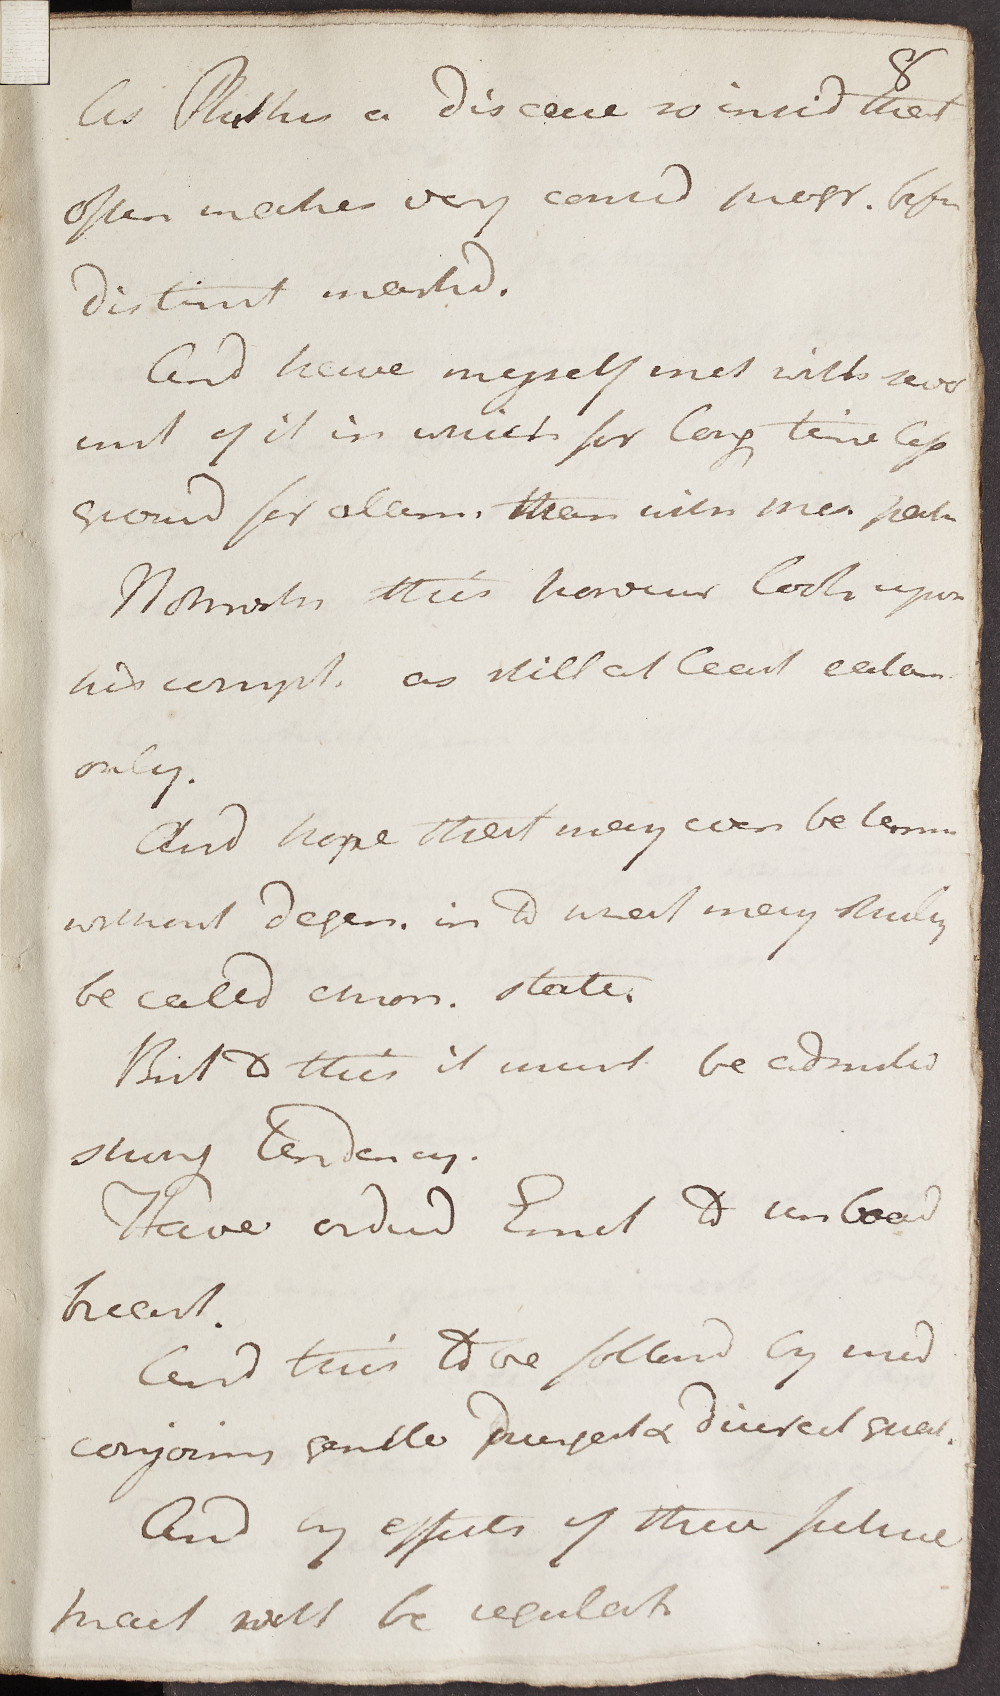 8
As Phthis a disease so insid that
often makes very consid progr. befor
distinct markd.
And have myself met with
inst of it in which for long time less
ground for alarm. than with this patn
Notwiths this however look upon
his compl. as still at least catarr
only.
And hope that may even be termin
without degen. in to what may strictly
be called chron. state.
But to this it must be admitted
strong tendency.
Have ordered Emet to unload
breast.
And this to be follow'd by med
conjoining gentle purgat & diuret
And by effects of these future
treat will be regulat